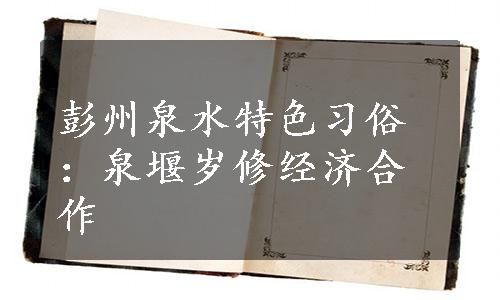 彭州泉水特色习俗
：泉堰岁修经济合
作